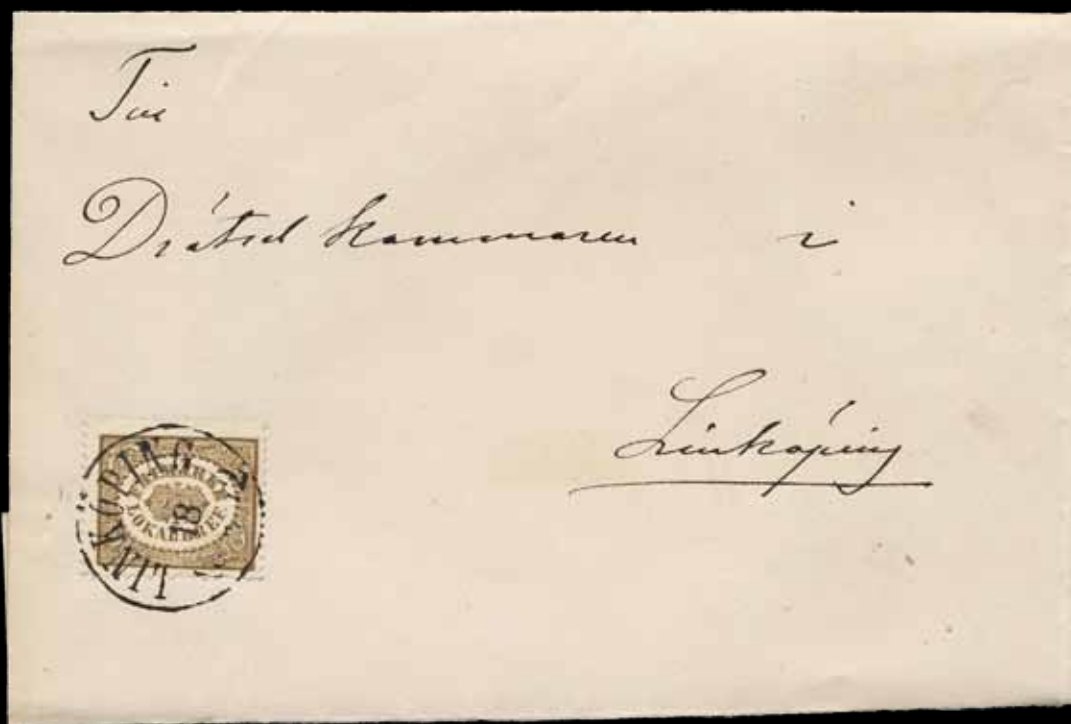 Till
Drätsel kammaren i
Linköping
LINKÖPING
18
FRIMÄRKE FÖR
LOKALBREF